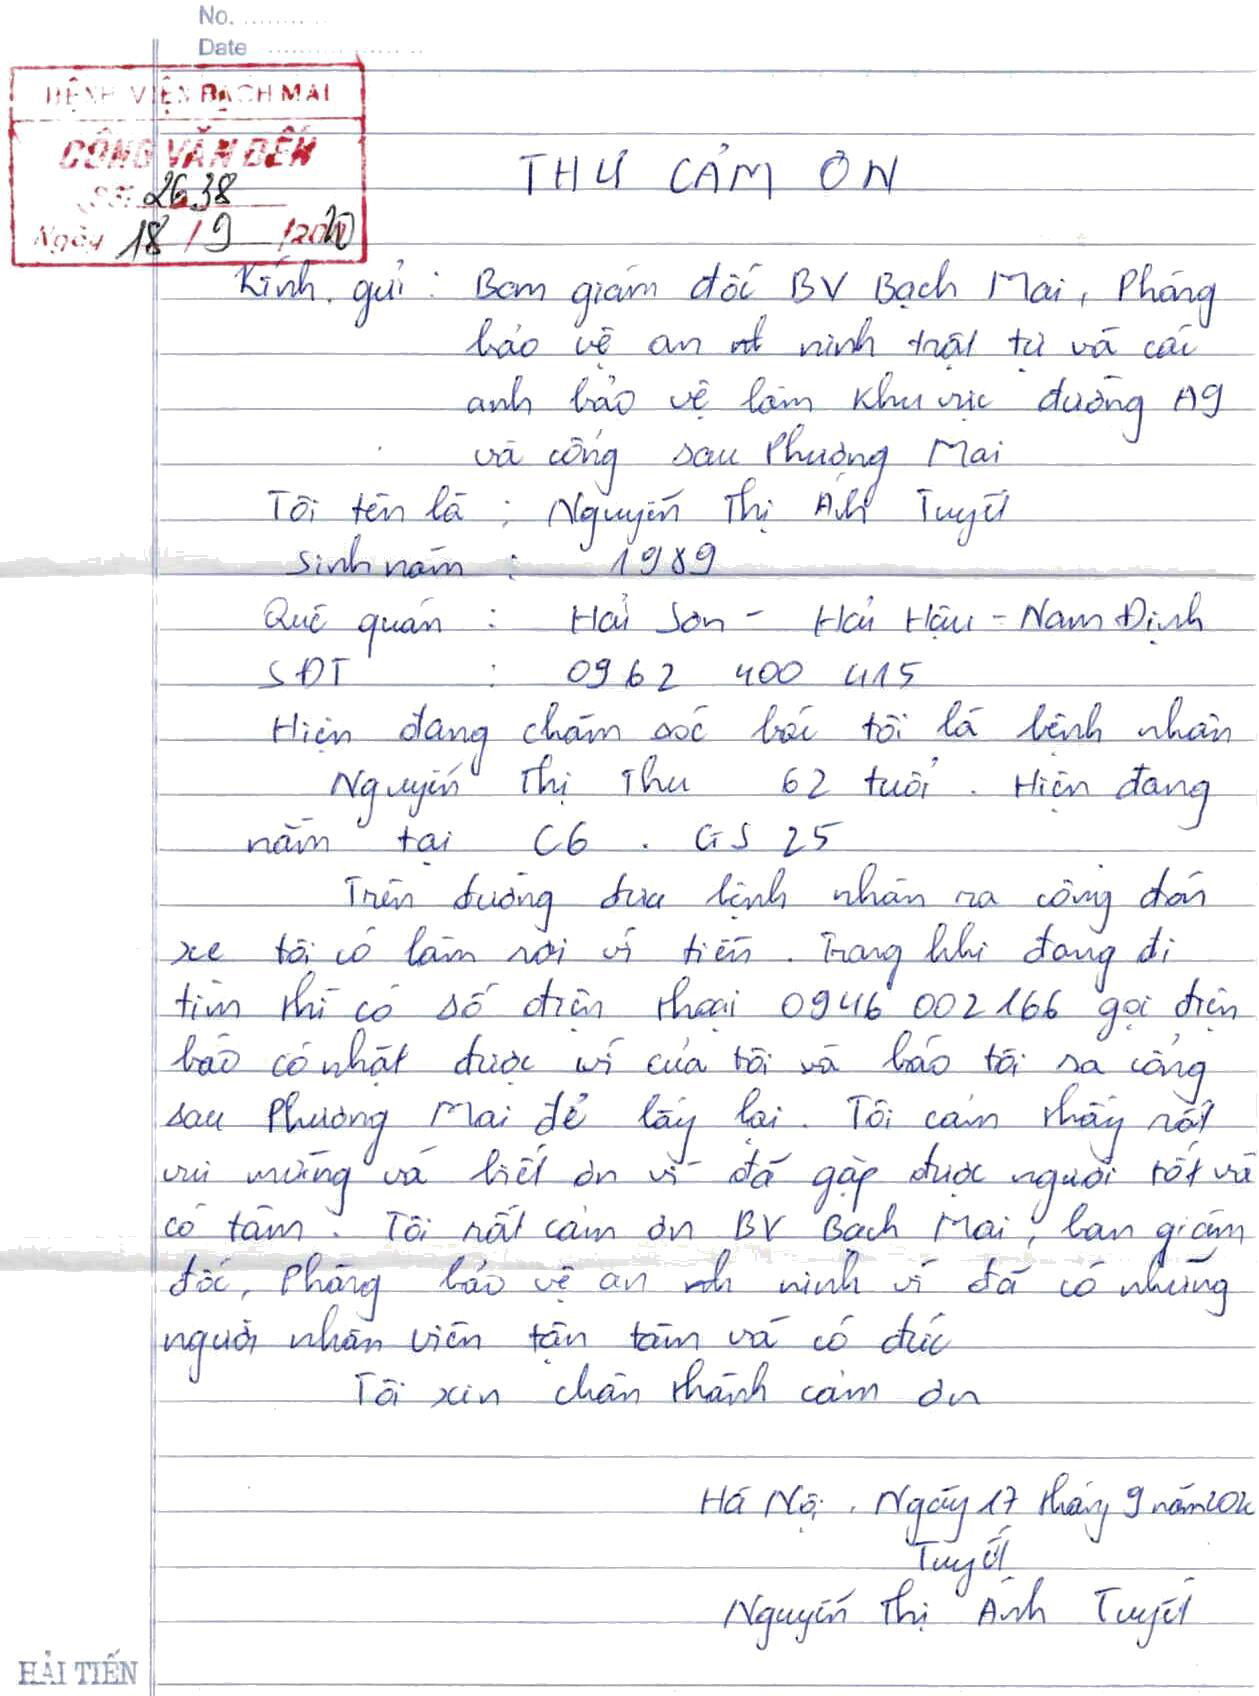 No. ...........
Date ...................
BỆNH VIỆN BẠCH MAI
CÔNG VĂN ĐẾN
Số: 2638
Ngày 18 / 9 / 2020
THƯ CẢM ƠN
Kính gửi : Ban giám đốc BV Bạch Mai, Phòng
bảo vệ an ninh trật tự và các
anh bảo vệ làm khu vực đường A9
và cổng sau Phương Mai
Tôi tên là : Nguyễn Thị Ánh Tuyết
Sinh năm : 1989
Quê quán : Hải Sơn - Hải Hậu - Nam Định
SĐT : 0962 400 415
Hiện đang chăm sóc bác tôi là bệnh nhân
Nguyễn Thị Thu 62 tuổi. Hiện đang
nằm tại C6 . GS 25
Trên đường đưa bệnh nhân ra cổng đón
xe tôi có làm rơi ví tiền. Trong khi đang đi
tìm thì có số điện thoại 0946 002 166 gọi điện
báo có nhặt được ví của tôi và báo tôi ra cổng
sau Phương Mai để lấy lại. Tôi cảm thấy rất
vui mừng và biết ơn vì đã gặp được người tốt và
có tâm. Tôi rất cảm ơn BV Bạch Mai, ban giám
đốc, Phòng bảo vệ an ninh vì đã có những
người nhân viên tận tâm và có đức
Tôi xin chân thành cảm ơn
Hà Nội, Ngày 17 tháng 9 năm 202
Tuyết
Nguyễn Thị Ánh Tuyết
HẢI TIẾN